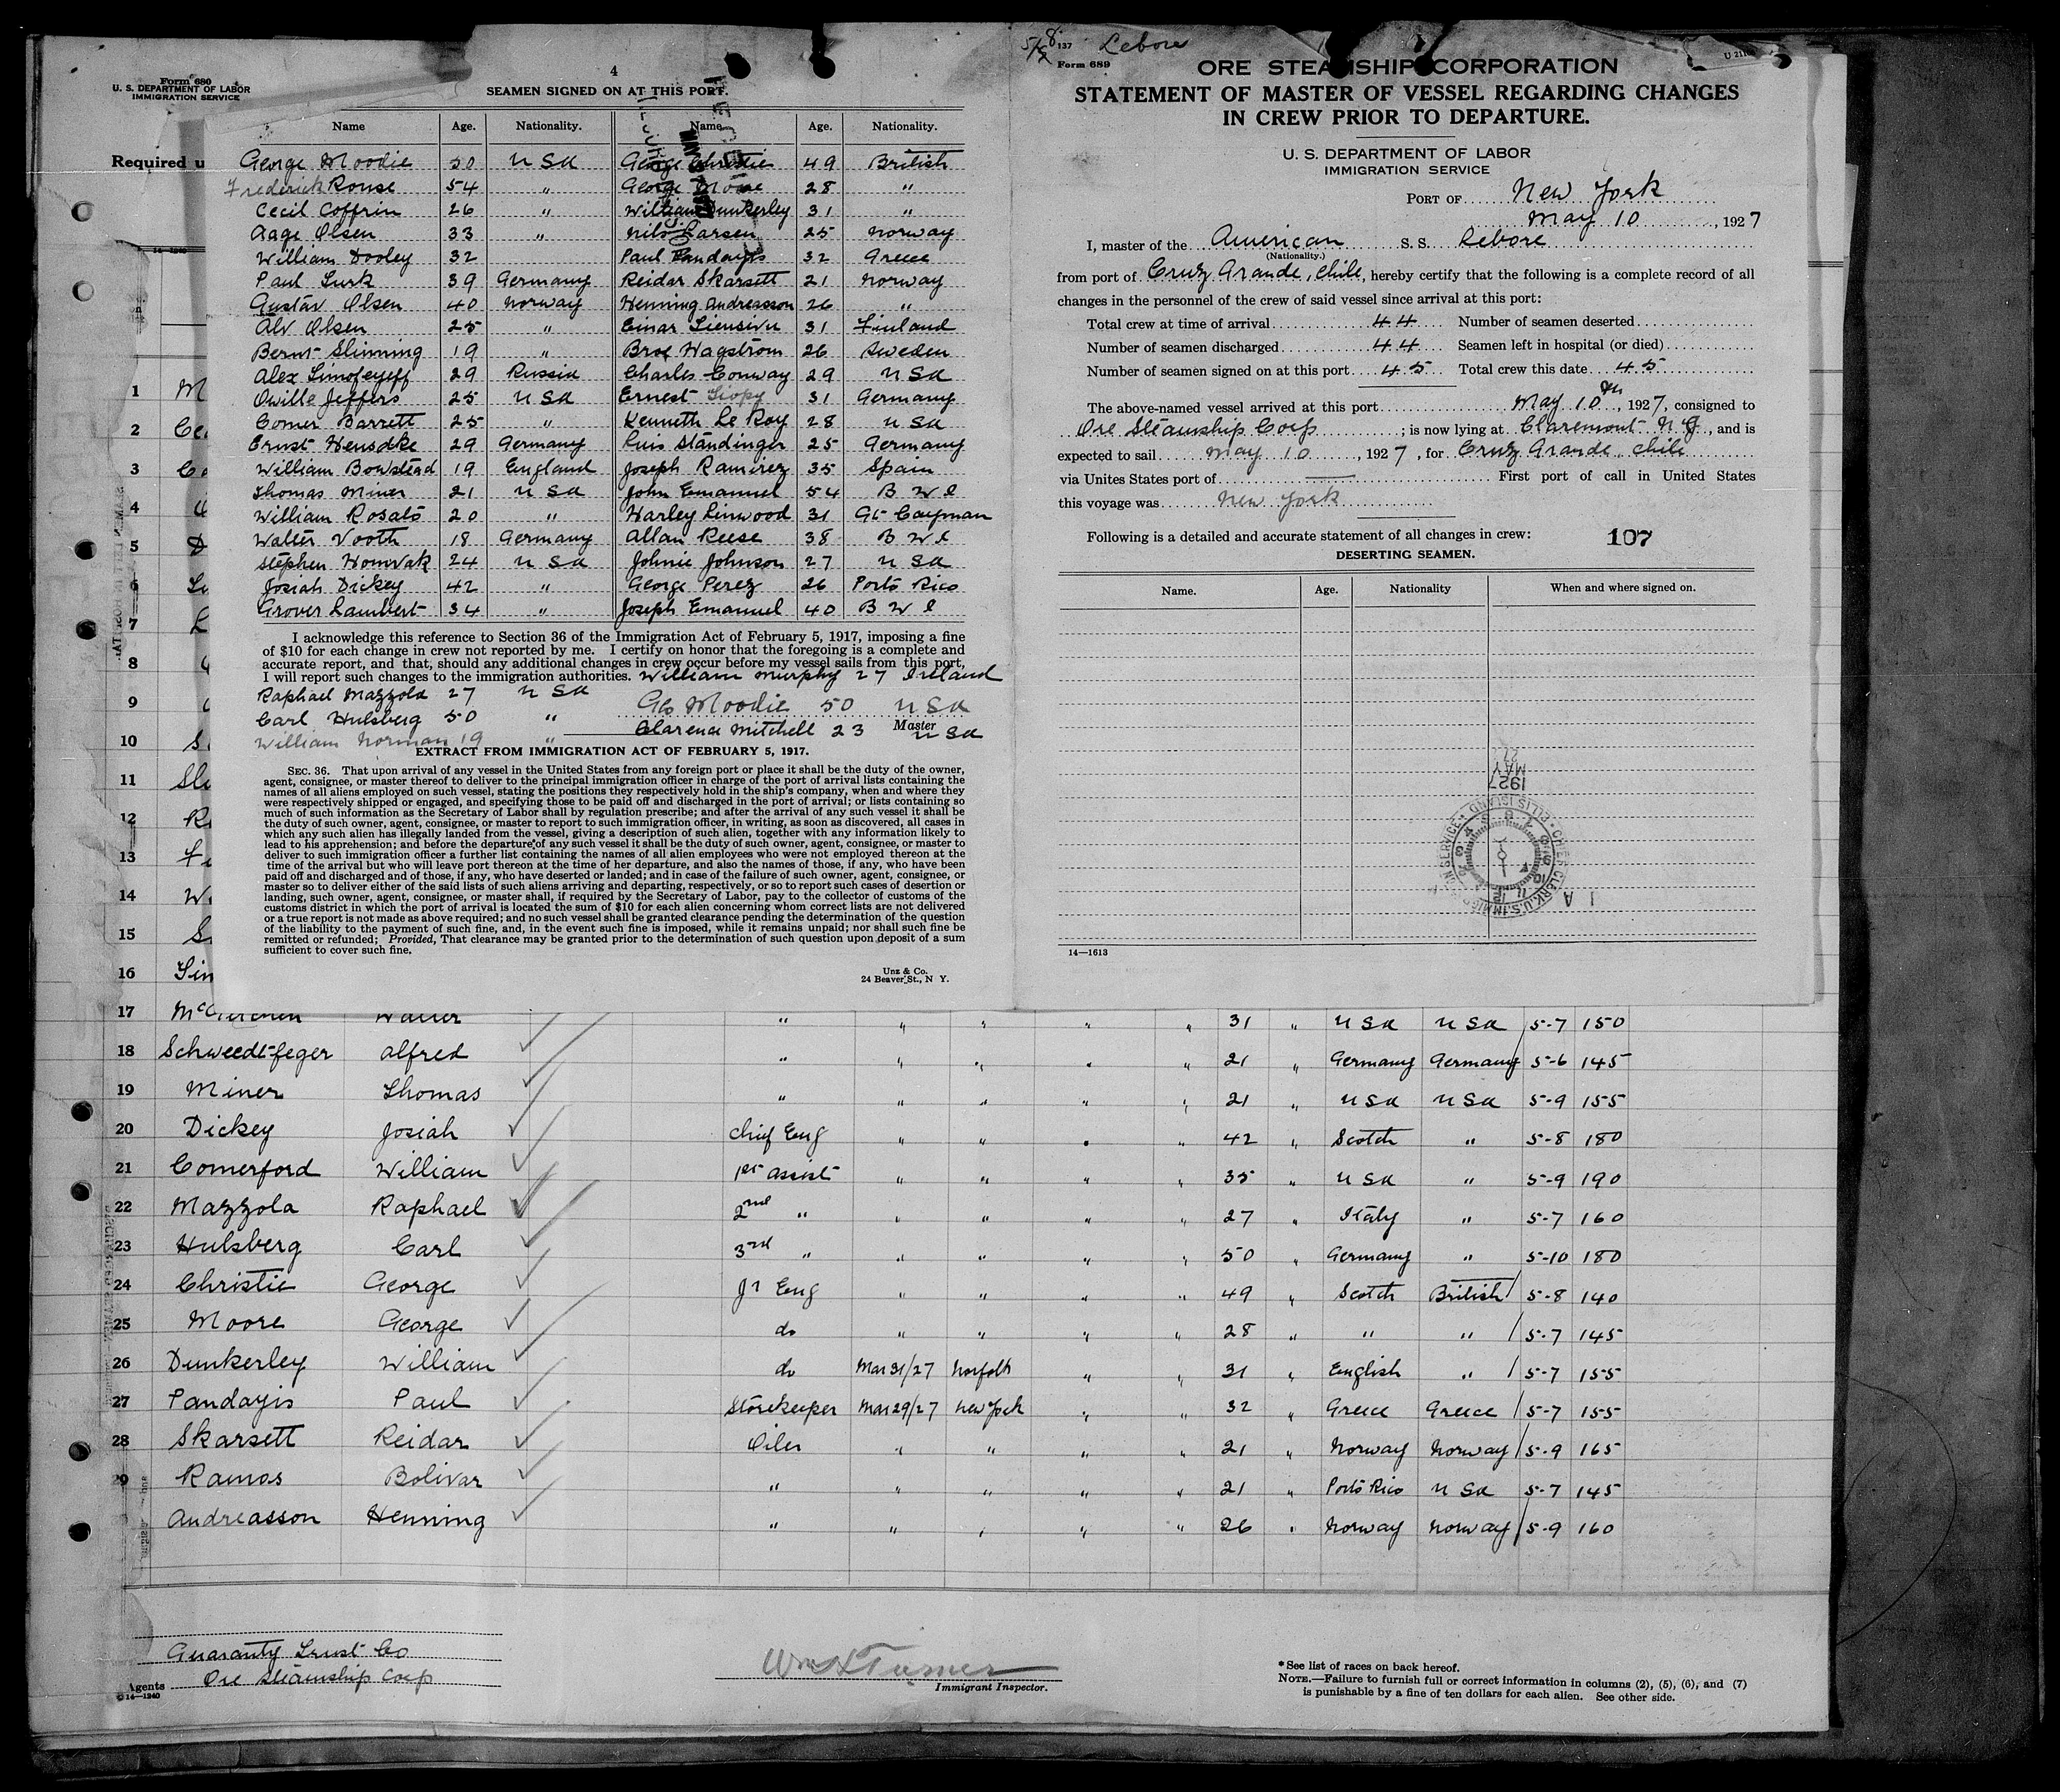 Form 680
U. S. DEPARTMENT OF LABOR
IMMIGRATION SERVICE
Required u
4
SEAMEN SIGNED ON AT THIS PORT.
Name Age. Nationality. Name Age. Nationality.
George Moodie 50 U Sa George Christie 49 British
Frederick Rouse 54 " George Moore 28 "
Cecil Coffrin 26 " William Dunkerley 31 "
Aage Olsen 33 " Nils Larsen 25 Norway
William Dooley 32 Paul Pandayis 32 Greece
Paul Lurk 39 Germany Reidar Skarsett 21 Norway
Gustav Olsen 40 Norway Henning Andreasson 26 "
Alv Olsen 25 " Einar 31 Finland
Bernt Slinning 19 " Hagstrom 26 Sweden
Alex Timofeyeff 29 Russia Charles Conway 29 U Sa
Jeffers 25 U Sa Ernest 31 Germany
Comer Barrett 25 " Kenneth Le Roy 28 U Sa
Ernst 29 Germany Luis Standinger 25 Germany
William Bowstead 19 England Joseph Ramirez 35 Spain
Thomas Miner 21 U Sa John Emanuel 54 B W I
William Rosato 20 " Harley Linwood 31 Gt Cayman
Walter Vooth 18 Germany Allan Reese 38 B W I
Stephen 24 U Sa Johnie Johnson 27 U Sa
Josiah Dickey 42 " George Perez 26 Porto Rico
Grover Lambert 34 " Joseph Emanuel 40 B W I
I acknowledge this reference to Section 36 of the Immigration Act of February 5, 1917, imposing a fine
of $10 for each change in crew not reported by me. I certify on honor that the foregoing is a complete and
accurate report, and that, should any additional changes in crew occur before my vessel sails from this port,
I will report such changes to the immigration authorities. William Murphy 27 Ireland
Raphael Mazzola 27 U Sa
Geo Moodie 50 U Sa
Carl Hulsberg 50 "
Master
Clarence Mitchell 23 U Sa
William Norman 19 "
EXTRACT FROM IMMIGRATION ACT OF FEBRUARY 5, 1917.
SEC. 36. That upon arrival of any vessel in the United States from any foreign port or place it shall be the duty of the owner,
agent, consignee, or master thereof to deliver to the principal immigration officer in charge of the port of arrival lists containing the
names of all aliens employed on such vessel, stating the positions they respectively hold in the ship's company, when and where they
were respectively shipped or engaged, and specifying those to be paid off and discharged in the port of arrival; or lists containing so
much of such information as the Secretary of Labor shall by regulation prescribe; and after the arrival of any such vessel it shall be
the duty of such owner, agent, consignee, or master to report to such immigration officer, in writing, as soon as discovered, all cases in
which any such alien has illegally landed from the vessel, giving a description of such alien, together with any information likely to
lead to his apprehension; and before the departure of any such vessel it shall be the duty of such owner, agent, consignee, or master to
deliver to such immigration officer a further list containing the names of all alien employees who were not employed thereon at the
time of the arrival but who will leave port thereon at the time of her departure, and also the names of those, if any, who have been
paid off and discharged and of those, if any, who have deserted or landed; and in case of the failure of such owner, agent, consignee, or
master so to deliver either of the said lists of such aliens arriving and departing, respectively, or so to report such cases of desertion or
landing, such owner, agent, consignee, or master shall, if required by the Secretary of Labor, pay to the collector of customs of the
customs district in which the port of arrival is located the sum of $10 for each alien concerning whom correct lists are not delivered
or a true report is not made as above required; and no such vessel shall be granted clearance pending the determination of the question
of the liability to the payment of such fine, and, in the event such fine is imposed, while it remains unpaid; nor shall such fine be
remitted or refunded; Provided, That clearance may be granted prior to the determination of such question upon deposit of a sum
sufficient to cover such fine.
Unz & Co.
24 Beaver St., N Y.
137 Lebore
Form 689
ORE STEAMSHIP CORPORATION
STATEMENT OF MASTER OF VESSEL REGARDING CHANGES
IN CREW PRIOR TO DEPARTURE.
U. S. DEPARTMENT OF LABOR
IMMIGRATION SERVICE
PORT OF New York
May 10, 1927
I, master of the American S. S. Lebore
(Nationality.)
from port of Cruz Grande, Chile, hereby certify that the following is a complete record of all
changes in the personnel of the crew of said vessel since arrival at this port:
Total crew at time of arrival 44 Number of seamen deserted
Number of seamen discharged 44 Seamen left in hospital (or died)
Number of seamen signed on at this port 45 Total crew this date 45
The above-named vessel arrived at this port May 10th, 1927, consigned to
Ore Steamship Corp; is now lying at Claremont N J, and is
expected to sail May 10, 1927, for Cruz Grande Chile
via Unites States port of First port of call in United States
this voyage was New York
Following is a detailed and accurate statement of all changes in crew: 107
DESERTING SEAMEN.
Name. Age. Nationality When and where signed on.
1927
MAY
CHIEF CLERK, U.S. IMMIGRATION SERVICE · ELLIS ISLAND
14—1613
1 M
2
3
4
5
6
7
8
9
10
11
12
13
14
15
16
17 Walter " " " " " 31 " U Sa U Sa 5-7 150
18 Schweedt-feger Alfred " " " " " 21 " Germany Germany 5-6 145
19 Miner Thomas " " " " " 21 " U Sa U Sa 5-9 155
20 Dickey Josiah Chief Eng " " " " 42 " Scotch " 5-8 180
21 Comerford William 1st assist " " " " 35 " U Sa " 5-9 190
22 Mazzola Raphael 2nd " " " " " 27 " Italy " 5-7 160
23 Hulsberg Carl 3rd " " " " " 50 " Germany " 5-10 180
24 Christie George Jr Eng " " " " 49 " Scotch British 5-8 140
25 Moore George do " " " " 28 " " " 5-7 145
26 Dunkerley William do Mar 31/27 Norfolk " " 31 " English " 5-7 155
27 Pandayis Paul Storekeeper Mar 29/27 New York " " 32 " Greece Greece 5-7 155
28 Skarsett Reidar Oiler " " " " 21 " Norway Norway 5-9 165
29 Ramos Bolivar " " " " " 21 " Porto Rico U Sa 5-7 145
Andreasson Henning " " " " " 26 " Norway Norway 5-9 160
Guaranty Trust Co
Ore Steamship Corp
Agents
14—1240
Wm Turner
Immigrant Inspector.
* See list of races on back hereof.
NOTE.—Failure to furnish full or correct information in columns (2), (5), (6), and (7)
is punishable by a fine of ten dollars for each alien. See other side.